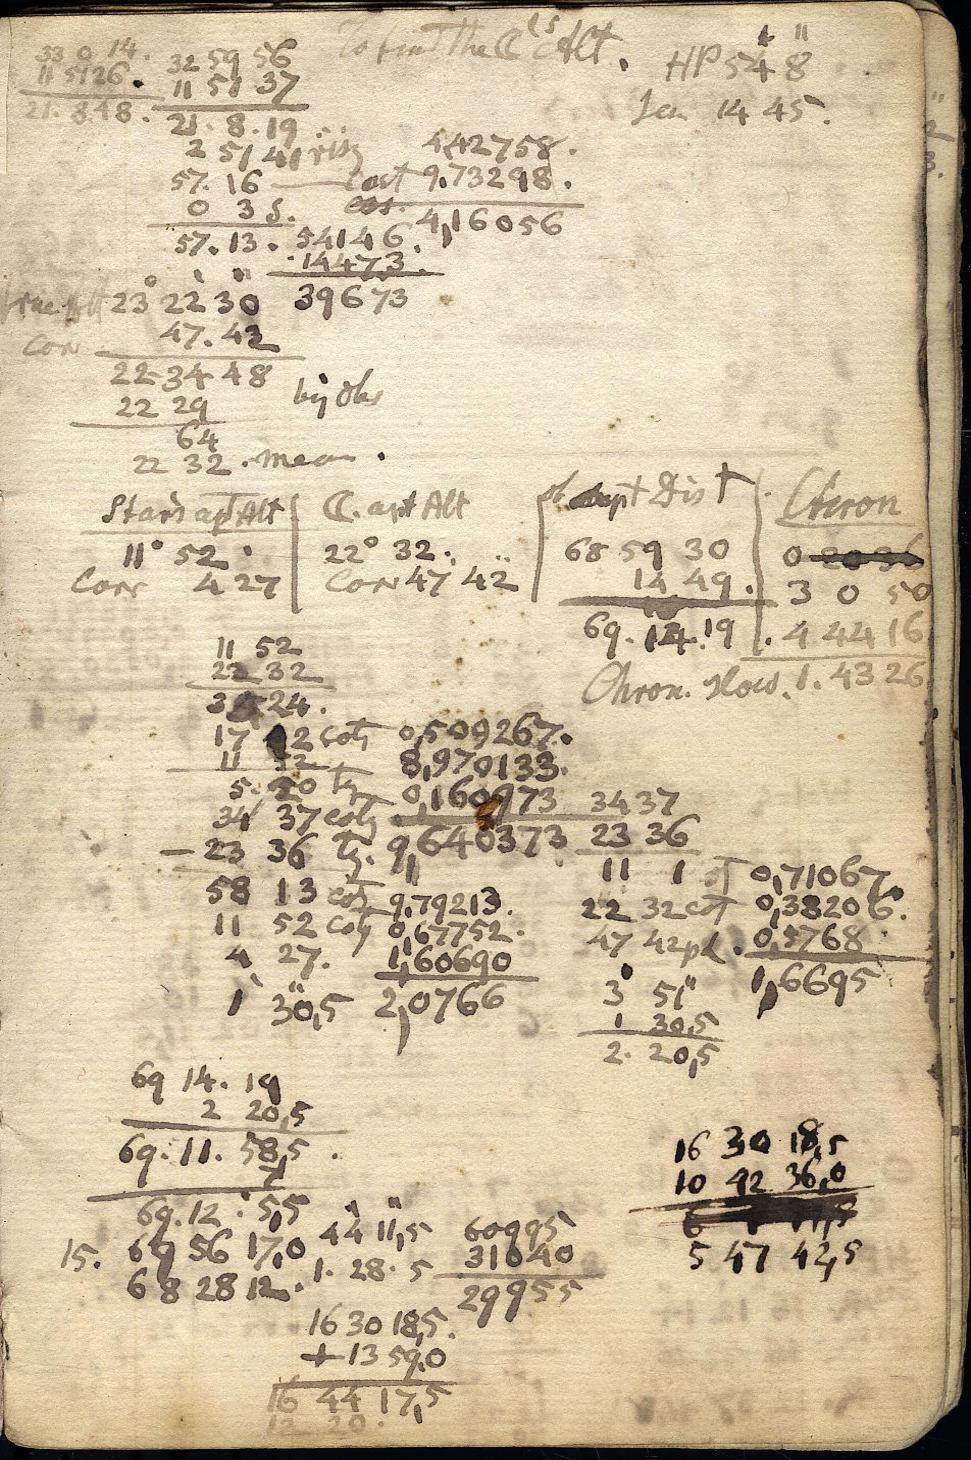 To find the ☾'s Alt.
HP 54 8
Sem 14 45.
33 0 14. 32 59 56
11 51 26. 11 51 37
21. 8.48. 21. 8. 19
2 51 41 rising 4,42758.
57. 16 cost 9.73298.
0 3 5. 4,16056
57. 13. 54146.
14473
true Alt 23° 22' 30" 39673
Cor 47. 42
22 34 48 by Obs
22 29
64
22 32. mean.
Stars apt Alt
11° 52.
Corr 4 27
☾. apt Alt
22° 32.
Corr 47 42
apt Dist
68 59 30
14 49.
69. 14. 19
Chron
0 20 36
3 0 50
4 44 16
Chron. slow. 1. 43 26
11 52
22 32
34 24.
17 12 cotg 0,509267.
11 52 8,970133.
5. 20 tg 0,160973
34 37 cotg 9,640373
23 36 tg.
58 13 cotg 9,79213.
11 52 cotg 0,67752.
4 27. 1,60690
1' 30",5 2,0766
34 37
23 36
11 1 0,71067.
22 32 cot 0,38206.
47 42 pl. 0,5768
3' 51" 1,6695
1 30,5
2. 20,5
69 14. 19
2 20,5
69. 11. 58,5.
7
69. 12. 5,5
15. 69 56 17,0 44' 11",5 60995
68 28 12. 1. 28. 5 31040
29955
16 30 18,5.
+ 13 59,0
16 44 17,5
12 20.
16 30 18,5
10 42 36,0
5 47 42,5